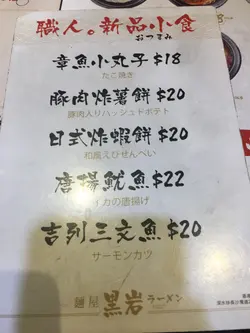 職人。新品小食
おつまみ
章魚小丸子 $18
たこ焼き
豚肉炸薯餅 $20
豚肉入りハッシュドポテト
日式炸蝦餅 $20
和風えびせんべい
唐揚魷魚 $22
イカの唐揚げ
吉列三文魚 $20
サーモンカツ
麺屋 黒岩 ラーメン